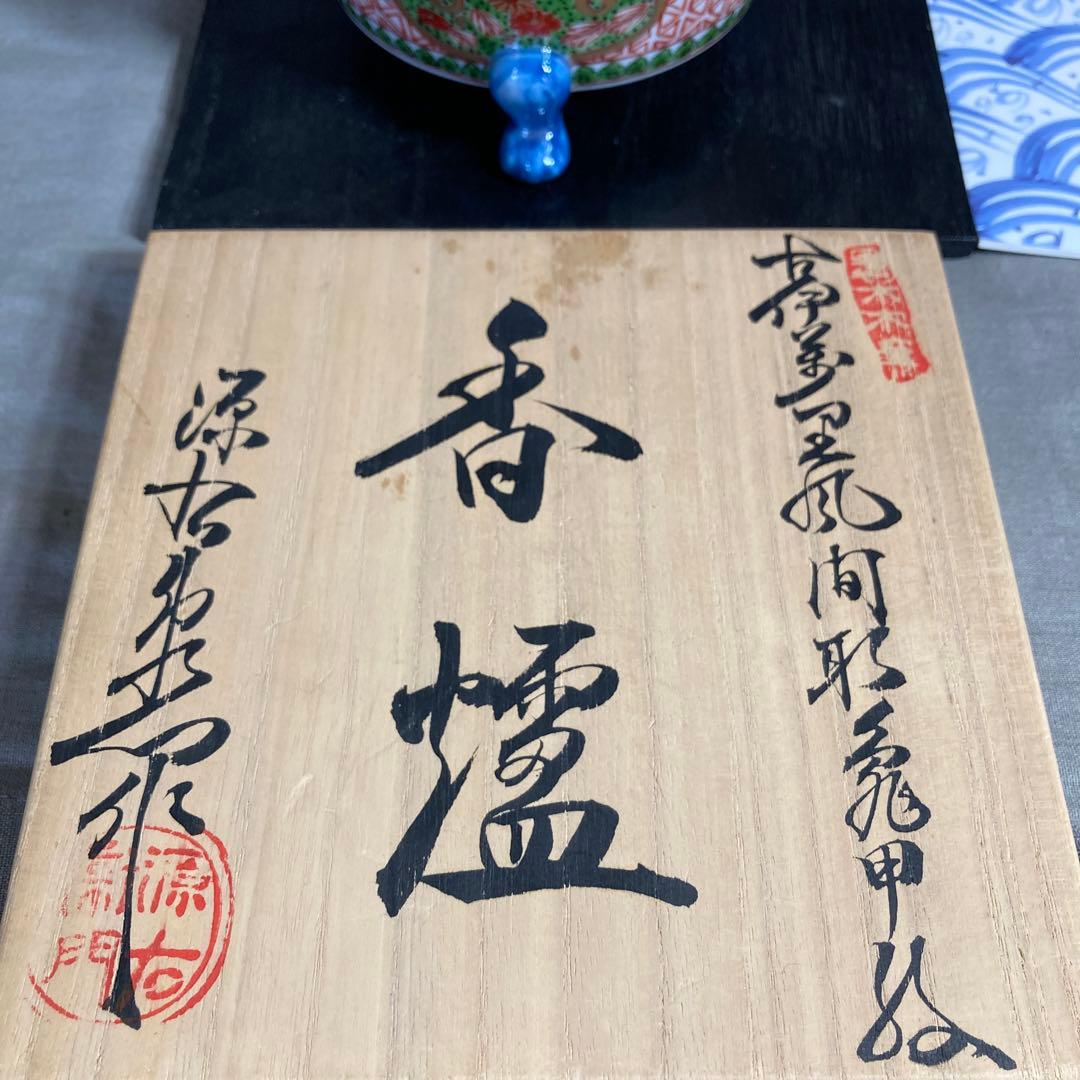 古伊萬里風間取亀甲紋
香爐
源右衛門作
源右衛門